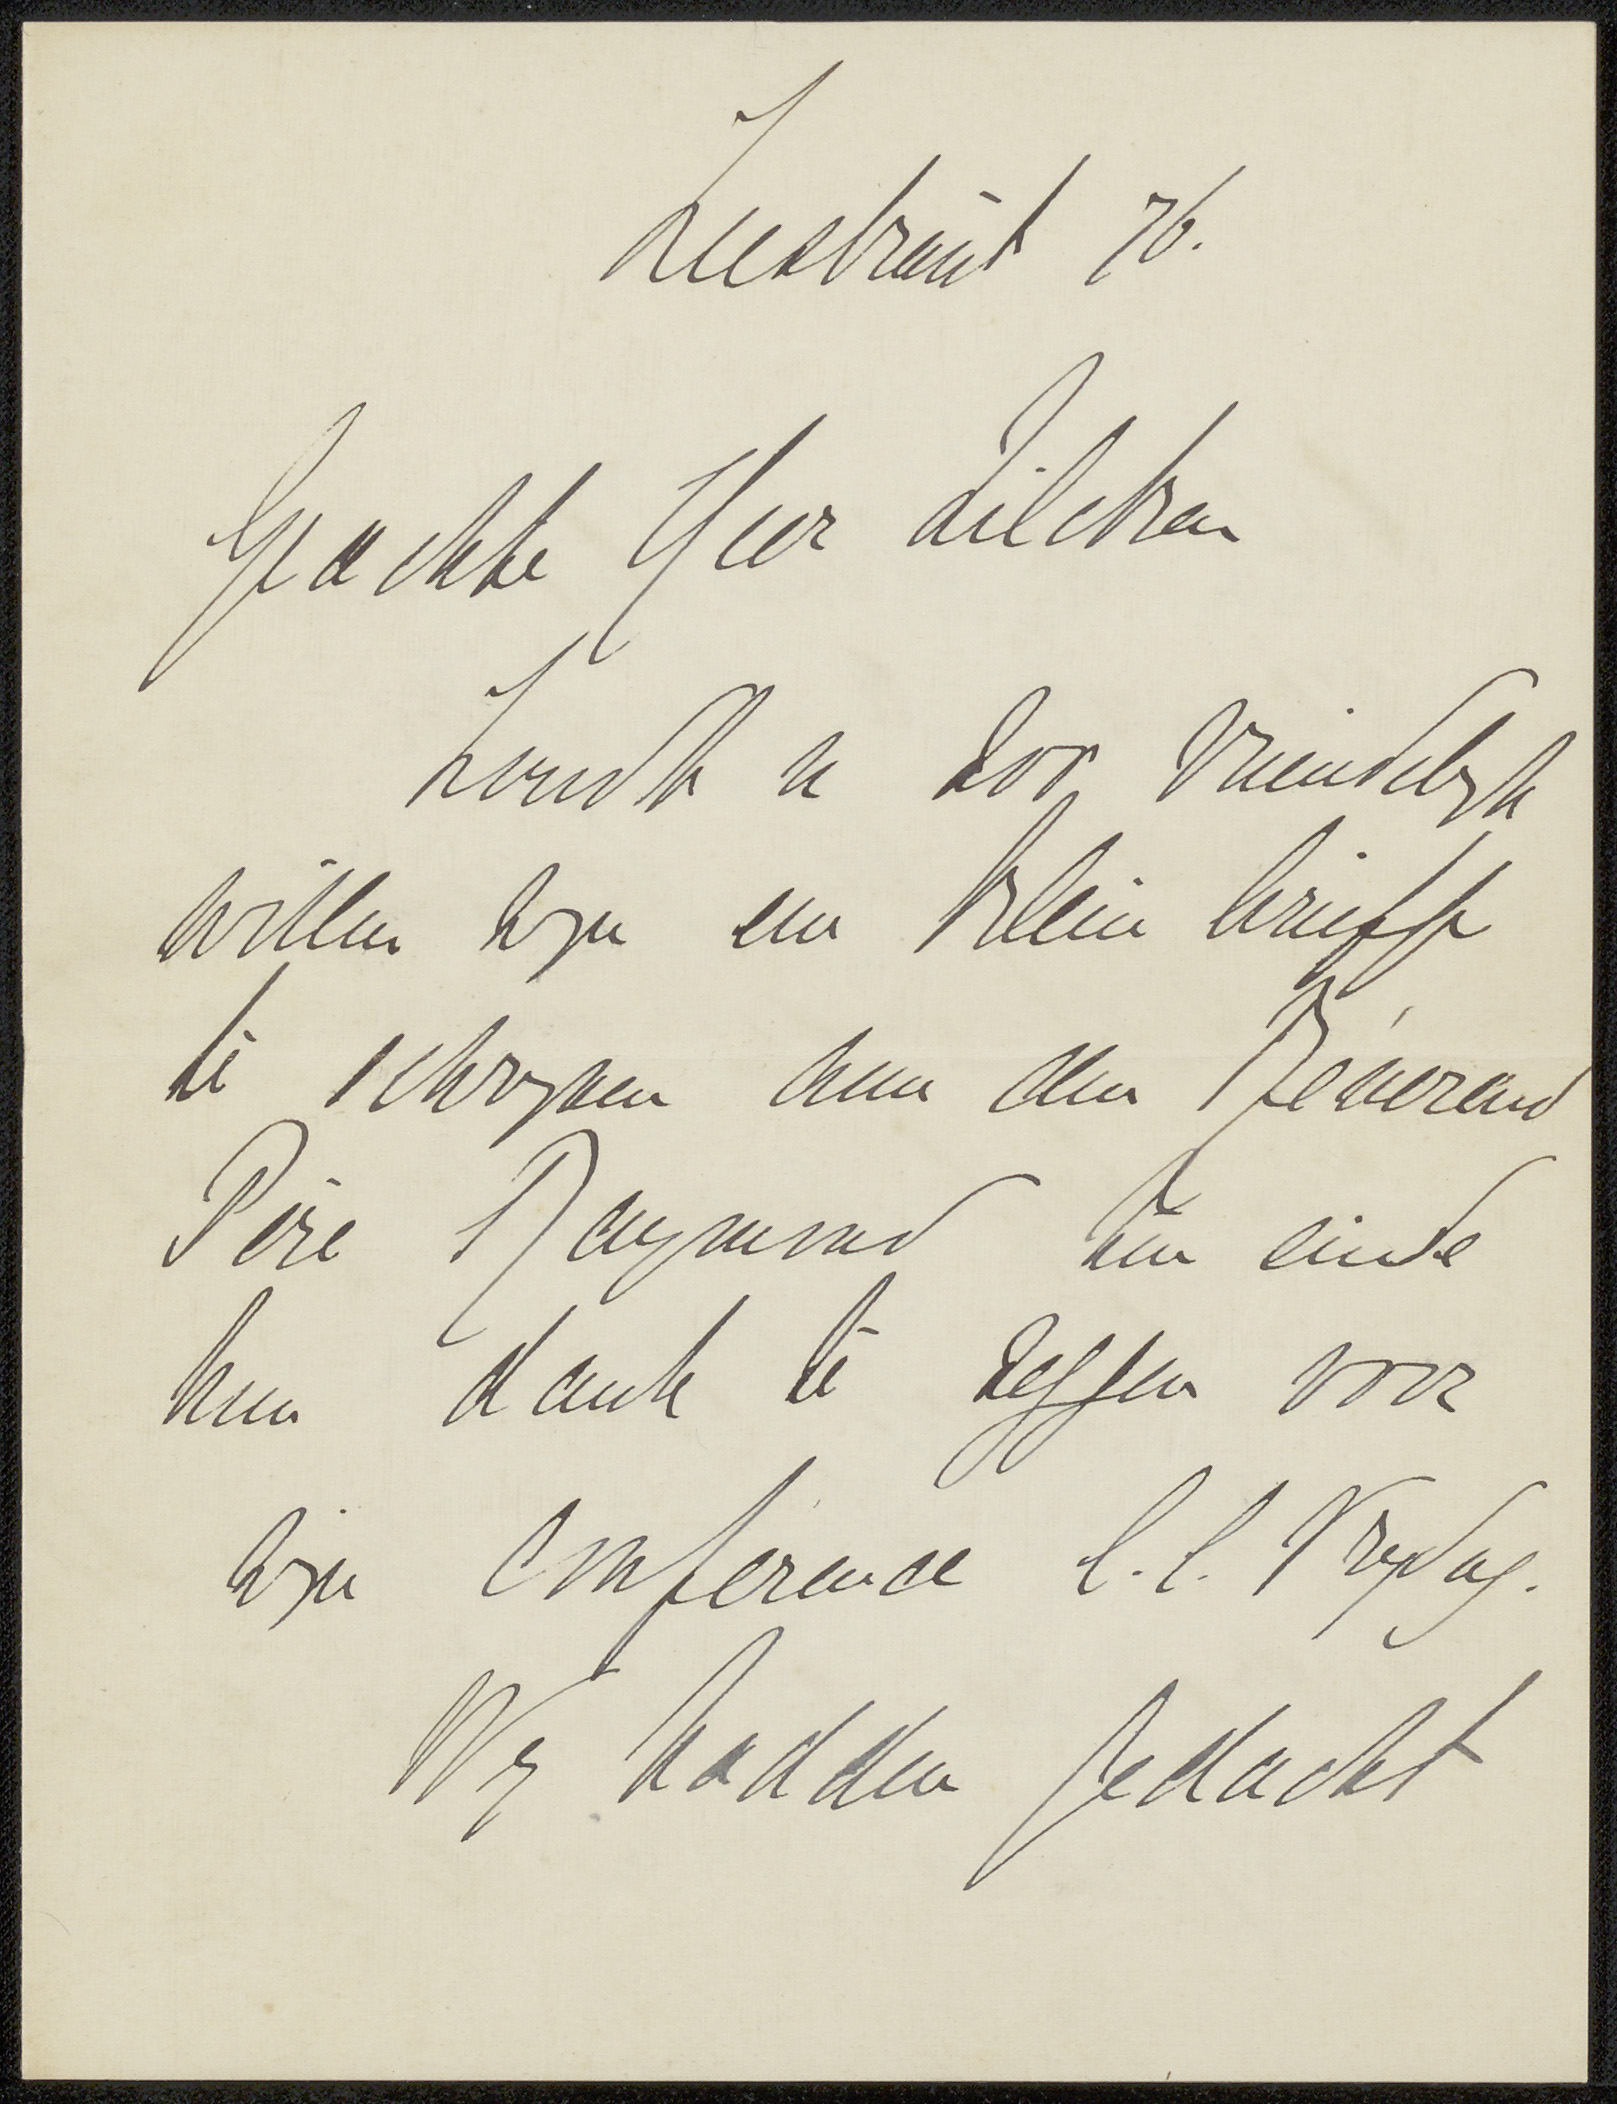 Zeestraat 76.
Geachte Heer Zilcken
Zoudt u zoo vriendelyk
willen zyn een klein briefje
te schryven aan den Révérend
Père Raymond ten einde
hem dank te zeggen voor
zijn Conférence l.l. Vrydag.
Wy hadden gedacht